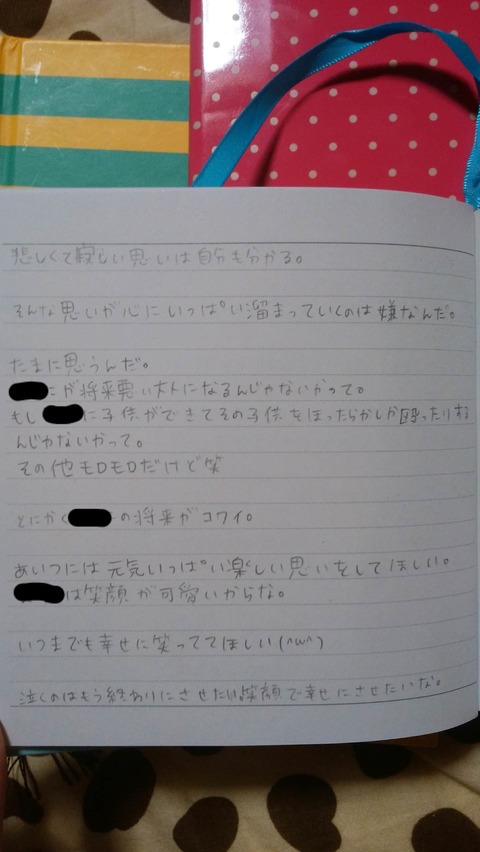 悲しくて寂しい思いは自分も分かる。
そんな思いが心にいっぱい溜まっていくのは嫌なんだ。
たまに思うんだ。
が将来悪い大人になるんじゃないかって。
もし に子供ができてその子供をほったらかしか殴ったりする
んじゃないかって。
その他もロモロだけど笑
とにかく の将来がコワイ。
あいつには元気いっぱい楽しい思いをしてほしい。
は笑顔が可愛いからな。
いつまでも幸せに笑っててほしい(^ω^)
泣くのはもう終わりにさせたい。笑顔で幸せにさせたいな。